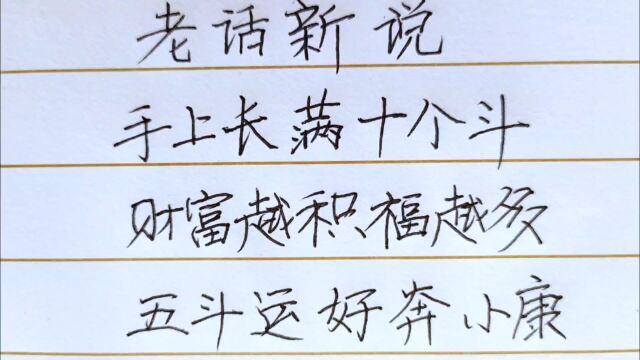 老话新说
手上长满十个斗
财富越积福越多
五斗运好奔小康